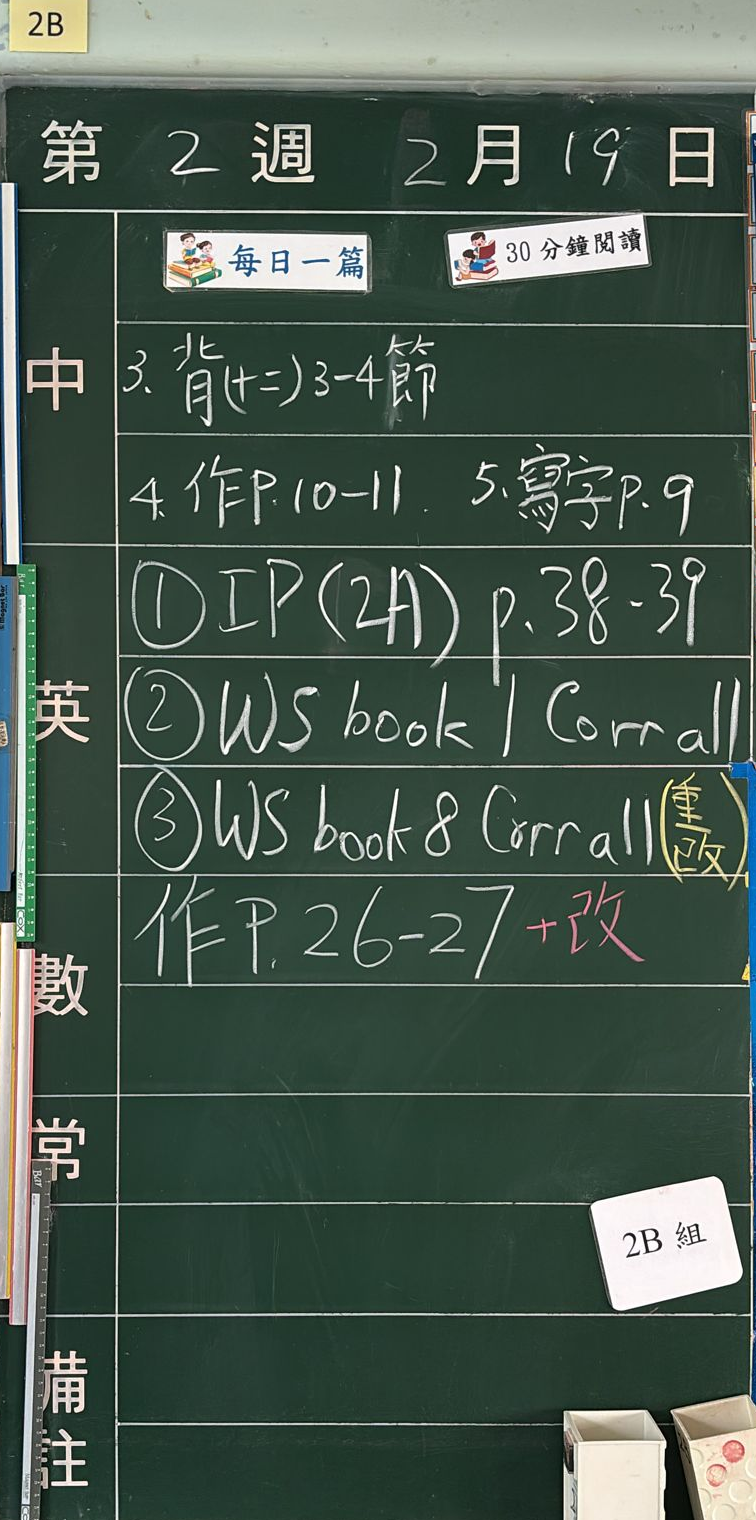 2B
第 2 週 2 月 19 日
每日一篇 30分鐘閱讀
中
3. 背(十二) 3-4節
4. 作P.10-11. 5. 寫字p.9
英
① IP (2A) p.38-39
② WS book 1 Corr all
③ WS book 8 Corr all (重改)
數
作P.26-27 +改
常
2B 組
備註